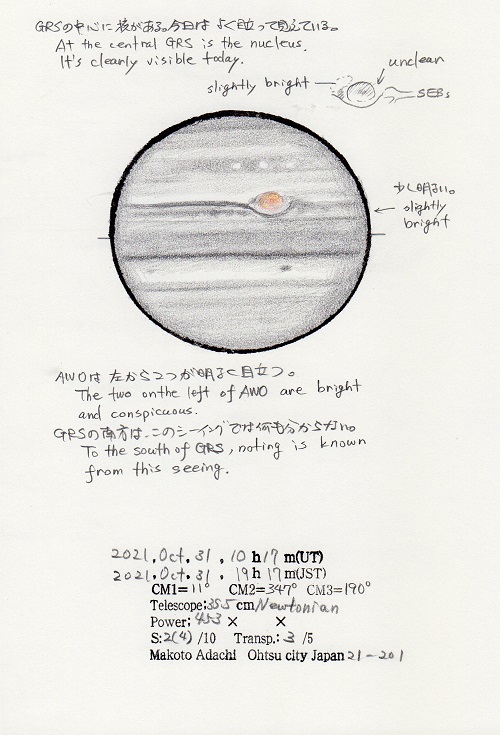 GRSの中心に核がある。今日はよく目立って見えている。
At the central GRS is the nucleus.
It's clearly visible today.
unclear
slightly bright
SEBs
少し明るい。
slightly
bright
AWOは左から2つが明るく目立つ。
The two on the left of AWO are bright
and conspicuous.
GRSの南方は、このシーイングでは何も分からない。
To the south of GRS, noting is known
from this seeing.
2021, Oct, 31, 10 h 17 m(UT)
2021, Oct. 31, 19 h 17 m(JST)
CM1=11° CM2=347° CM3=190°
Telescope:355 cm Newtonian
Power: 453 × ×
S:2(4) /10 Transp.: 3 /5
Makoto Adachi Ohtsu city Japan 21-201